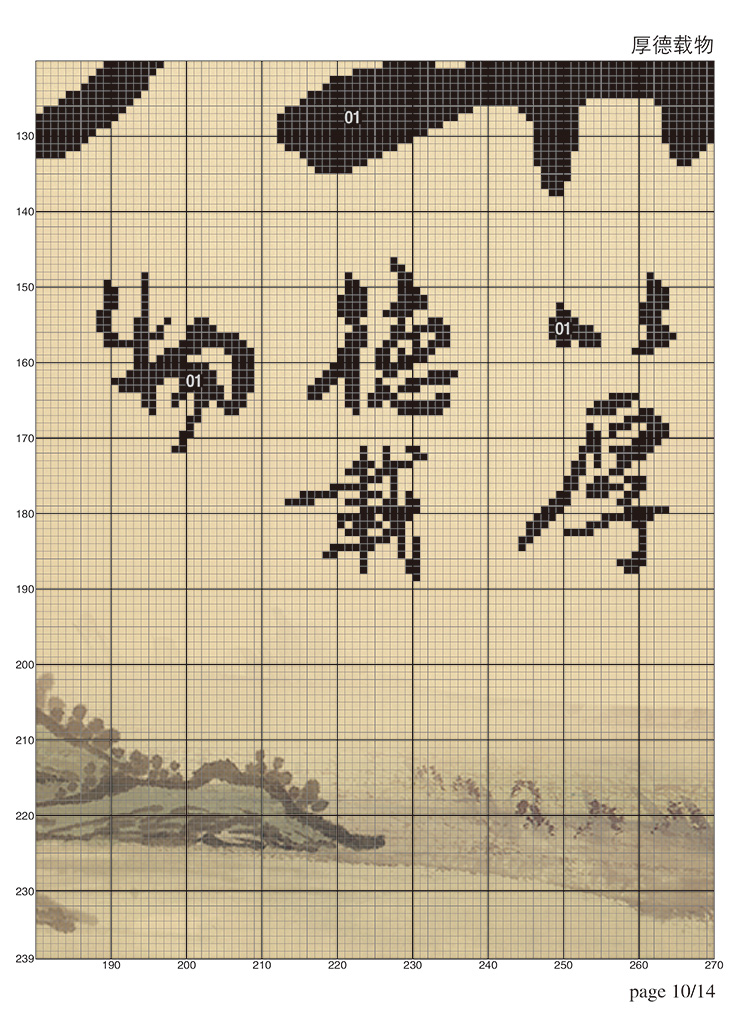 厚德载物
01
130
140
150
以厚
德載
物
01
01
160
170
180
190
200
210
220
230
239
190 200 210 220 230 240 250 260 270
page 10/14